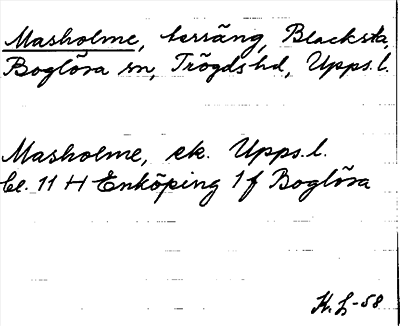 Masholme, terräng, Blacksta,
Boglösa sn, Trögds hd, Upps. l.
Masholme, ek. Upps. l.
bl. 11 H Enköping 1 f Boglösa
K. L-58